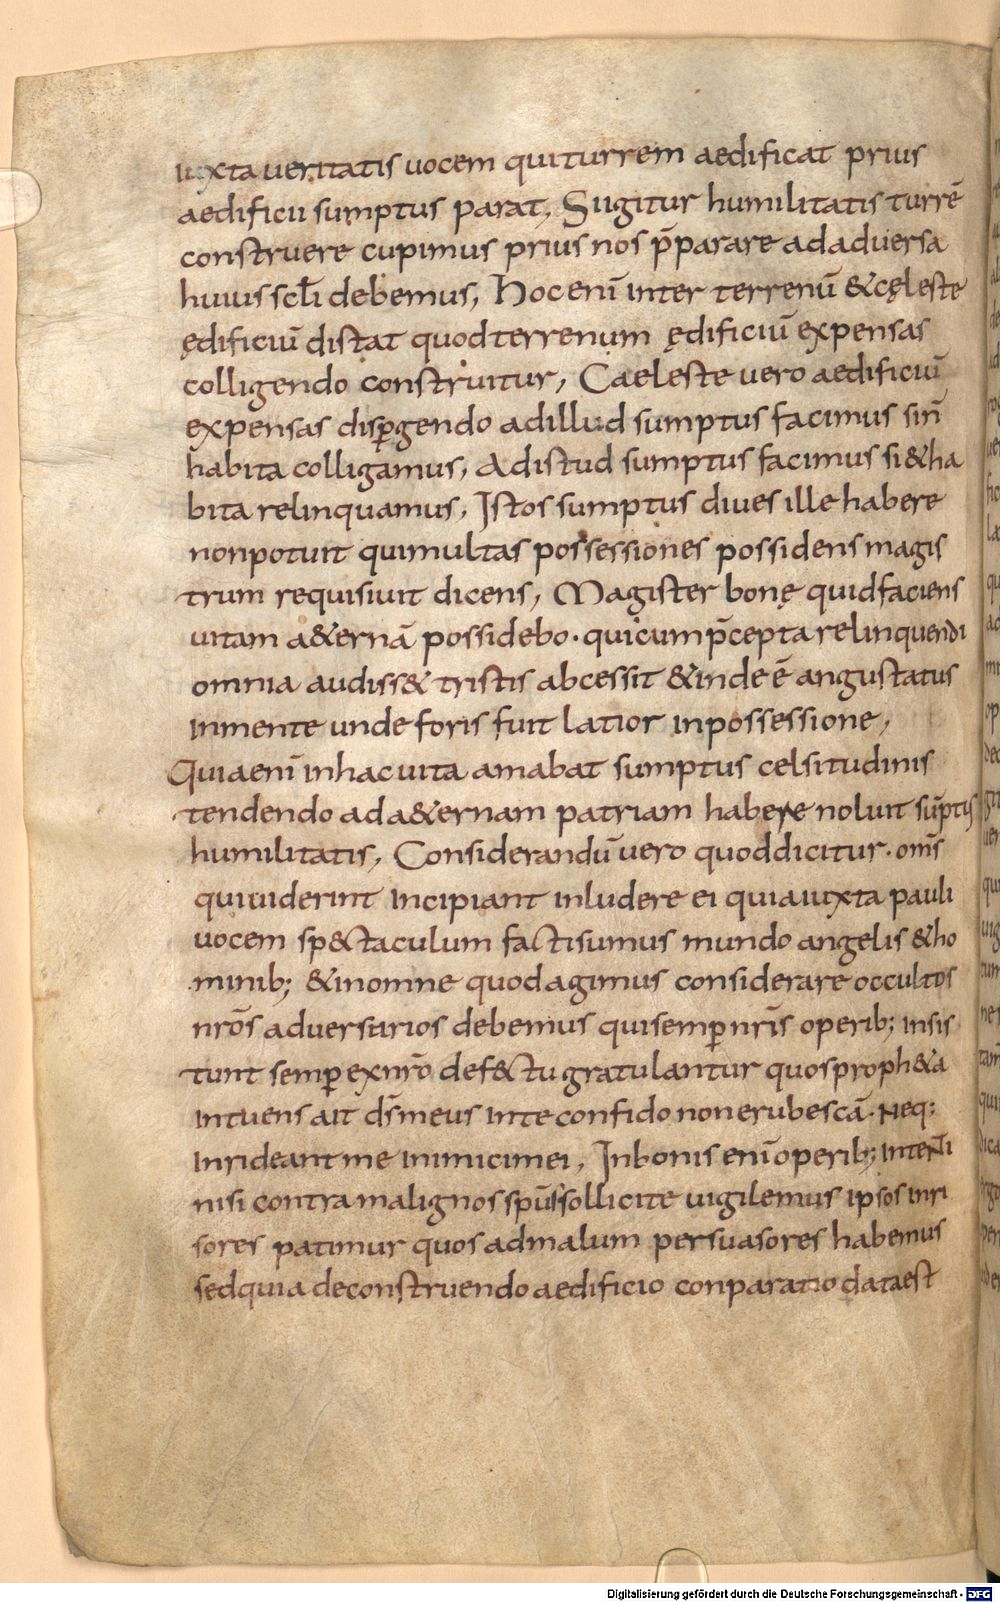 iuxta veritatis uocem qui turrem aedificat prius
aedificii sumptus parat, Si igitur humilitatis turrē
construere cupimus prius nos p̄parare ad aduersa
huius scl̄i debemus, Hoc enī inter terrenū & cęleste
ędificiū distat quod terrenum ędificiū expensas
colligendo construitur, Caeleste uero aedificiū
expensas disꝑgendo ad illud sumptus facimus si n̄
habita colligamus, Ad istud sumptus facimus si & ha
bita relinquamus, Istos sumptus diues ille habere
non potuit qui multas possessiones possidens magis
trum requisiuit dicens, Magister bonę quid faciens
uitam a&ernā possidebo · qui cum p̄cepta relinquendi
omnia audiss& tristis abcessit & inde ē angustatus
in mente unde foris fuit latior in possessione,
Quia enī in hac uita amabat sumptus celsitudinis
tendendo ad a&ernam patriam habere noluit sūptus
humilitatis, Considerandū uero quod dicitur · om̄s
qui uiderint incipiant inludere ei quia iuxta pauli
uocem sp&taculum facti sumus mundo angelis & ho
minib; & in omne quod agimus considerare occultos
nr̄os aduersarios debemus qui semꝑ nr̄is operib; insis
tunt semꝑ ex nr̄o def&tu gratulantur quos proph&a
intuens ait d̄s meus in te confido non erubescā · Neq;
inrideant me inimici mei, In bonis enī operib; intenti
nisi contra malignos sp̄us sollicite uigilemus ipsos inri
sores patimur quos ad malum persuasores habemus
sed quia de construendo aedificio conparatio data est
Digitalisierung gefördert durch die Deutsche Forschungsgemeinschaft - DFG